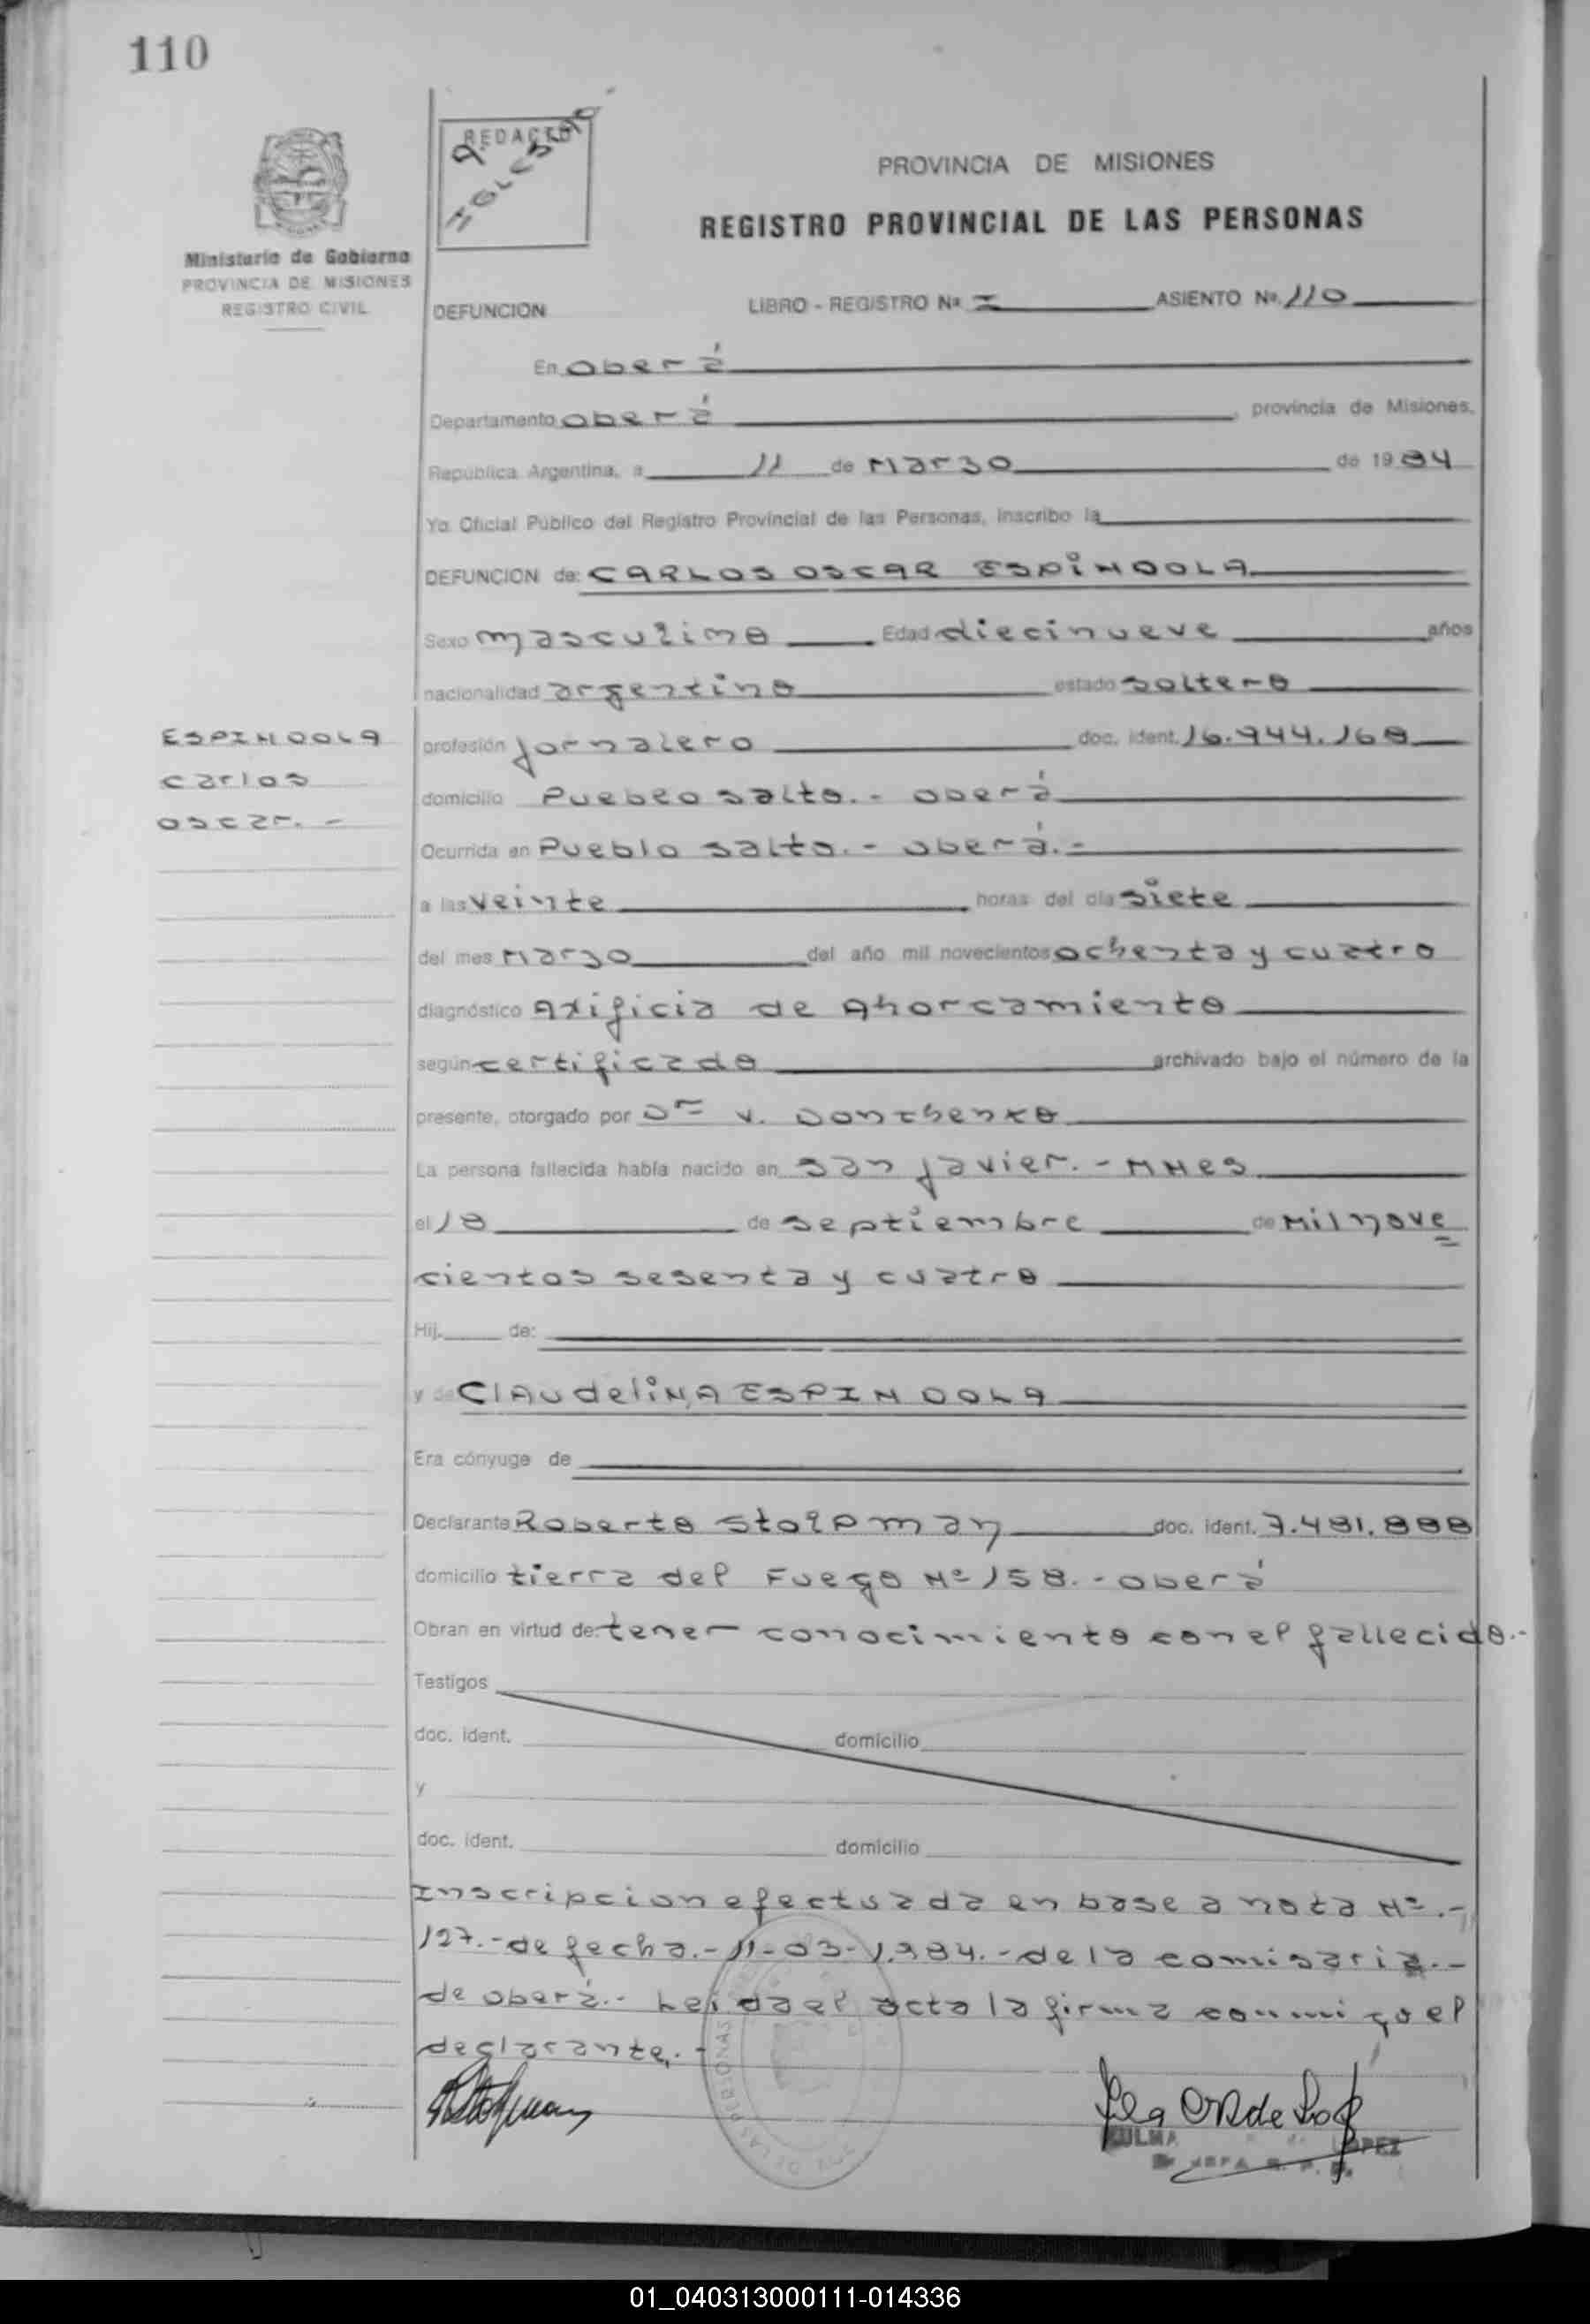 110
REDACTO
Ministerio de Gobierno
PROVINCIA DE MISIONES
REGISTRO CIVIL
PROVINCIA DE MISIONES
REGISTRO PROVINCIAL DE LAS PERSONAS
DEFUNCION LIBRO - REGISTRO Nº I ASIENTO Nº 110
En Oberá
Departamento Oberá, provincia de Misiones,
República Argentina, a 11 de Marzo de 1984
Yo Oficial Público del Registro Provincial de las Personas, inscribo la
DEFUNCION de: CARLOS OSCAR ESPINDOLA
Sexo masculino Edad diecinueve años
nacionalidad argentino estado soltero
ESPINDOLA
Carlos
Oscar.-
profesión Jornalero doc. ident. 16.944.168
domicilio Pueblo salto.- Oberá
Ocurrida en Pueblo salto.- Oberá.-
a las veinte horas del día siete
del mes Marzo del año mil novecientos ochenta y cuatro
diagnóstico Axificia de Ahorcamiento
según certificado archivado bajo el número de la
presente, otorgado por Dr V. Dontchenko
La persona fallecida había nacido en San Javier.- MNES
el 18 de septiembre de Mil nove
cientos sesenta y cuatro
Hij. de:
y de Claudelina ESPINDOLA
Era cónyuge de
Declarante Roberto Stolpman doc. ident. 7.481.888
domicilio tierra del Fuego Nº 158.- Oberá
Obran en virtud de: tener conocimiento con el fallecido.-
Testigos
doc. ident. domicilio
y
doc. ident. domicilio
Inscripcion efectuada en base a nota Nº.-
127.- de fecha.- 11-03-1.984.- de la comisaria.-
de Oberá.- Leida el acta la firma conmigo el
declarante.-
DE LAS PERSONAS
LOPEZ
01_040313000111-014336